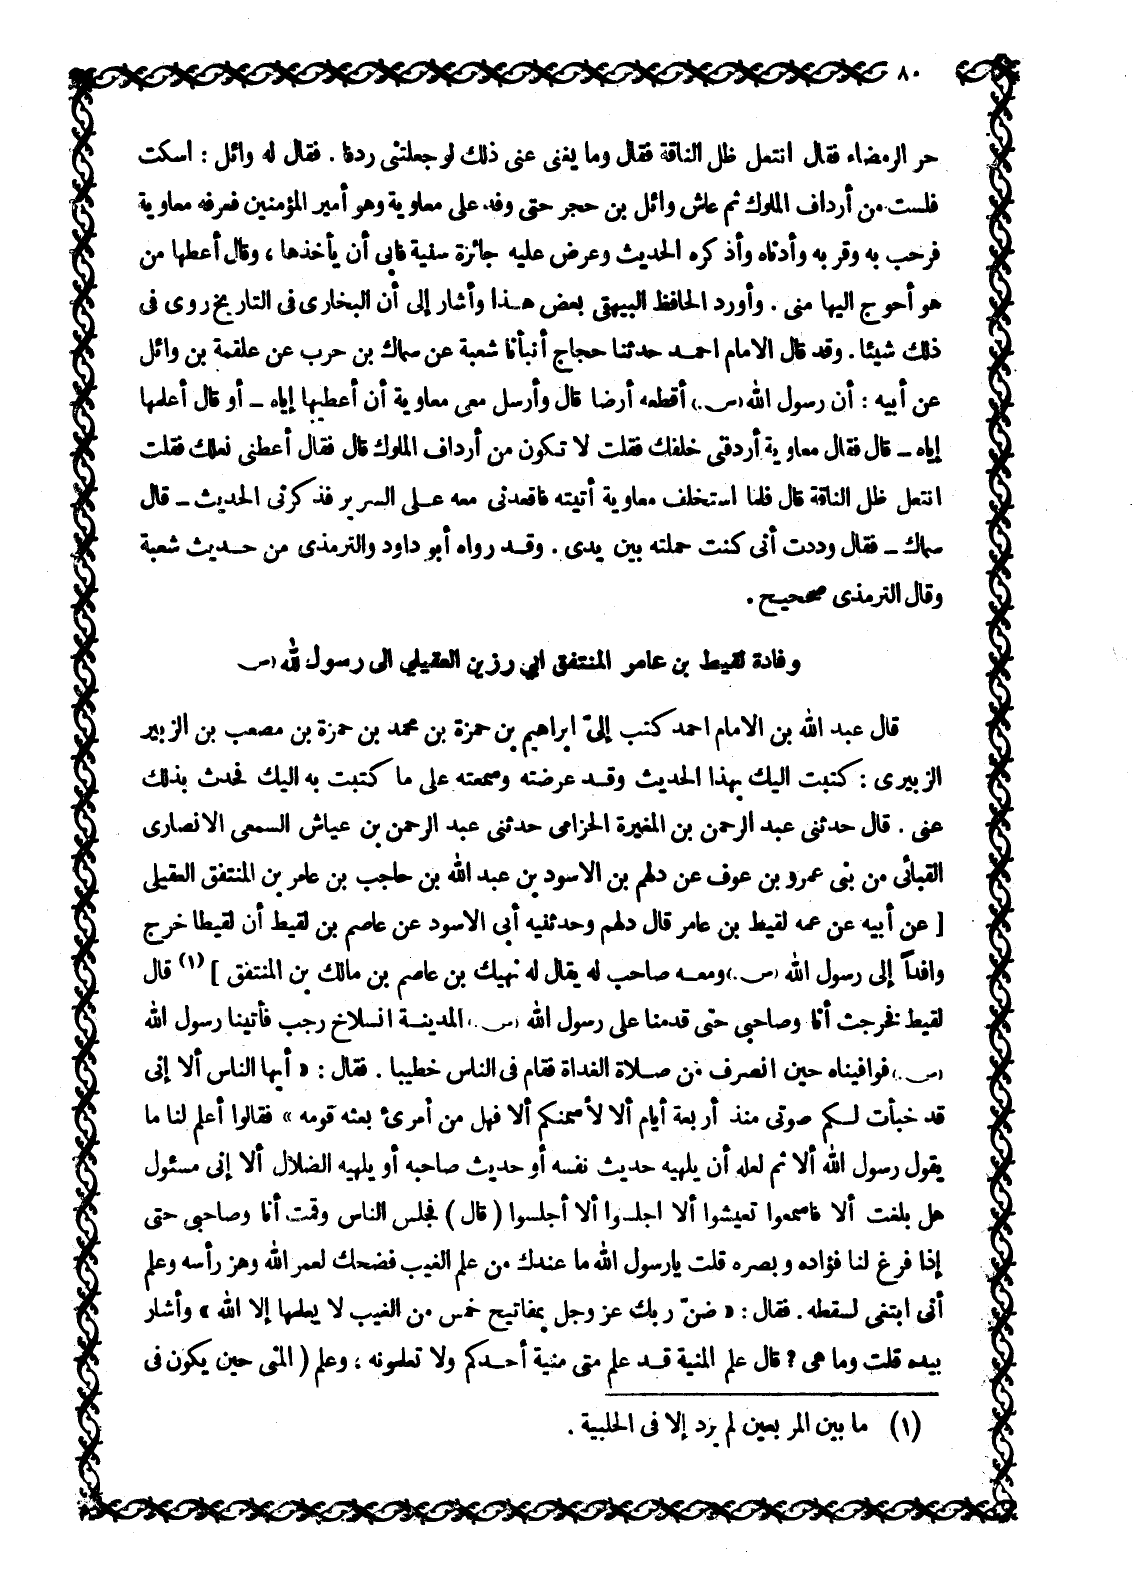 ٨٠
حر الرمضاء فقال انتعل ظل الناقة فقال وما يغنى عنى ذلك لو جعلتنى ردفا . فقال له وائل : اسكت
فلست من أرداف الملوك ثم عاش وائل بن حجر حتى وفد على معاوية وهو أمير المؤمنين فعرفه معاوية
فرحب به وقربه وأدناه وأذكره الحديث وعرض عليه جائزة سنية فأبى أن يأخذها ، وقال أعطها من
هو أحوج اليها منى . وأورد الحافظ البيهقى بعض هذا وأشار إلى أن البخارى فى التاريخ روى فى
ذلك شيئا . وقد قال الامام احمد حدثنا حجاج أنبأنا شعبة عن سماك بن حرب عن علقمة بن وائل
عن أبيه : أن رسول الله (س) أقطعه أرضا قال وأرسل معى معاوية أن أعطيها إياه – أو قال أعلمها
إياه – قال فقال معاوية أردفنى خلفك فقلت لا تكون من أرداف الملوك قال فقال أعطنى نعلك فقلت
انتعل ظل الناقة قال فلما استخلف معاوية أتيته فاقعدنى معه على السرير فذكرنى الحديث – قال
سماك – فقال وددت أنى كنت حملته بين يدى . وقد رواه أبو داود والترمذى من حديث شعبة
وقال الترمذى صحيح .
وفادة لقيط بن عامر المنتفق ابي رزين العقيلي الى رسول الله (س)
قال عبد الله بن الامام احمد كتب إلىّ ابراهيم بن حمزة بن محمد بن حمزة بن مصعب بن الزبير
الزبيرى : كتبت اليك بهذا الحديث وقد عرضته وسمعته على ما كتبت به اليك فحدث بذلك
عنى . قال حدثنى عبد الرحمن بن المغيرة الحزامى حدثنى عبد الرحمن بن عياش السمعى الانصارى
القبائى من بنى عمرو بن عوف عن دلهم بن الاسود بن عبد الله بن حاجب بن عامر بن المنتفق العقيلى
[ عن أبيه عن عمه لقيط بن عامر قال دلهم وحدثنيه أبى الاسود عن عاصم بن لقيط أن لقيطا خرج
وافداً إلى رسول الله (س) ومعه صاحب له يقال له نهيك بن عاصم بن مالك بن المنتفق ] (١) قال
لقيط فخرجت أنا وصاحبى حتى قدمنا على رسول الله (س) المدينة انسلاخ رجب فأتينا رسول الله
(س) فوافيناه حين انصرف من صلاة الغداة فقام فى الناس خطيبا . فقال : « أيها الناس ألا إنى
قد خبأت لكم صوتى منذ أربعة أيام ألا لأسمعنكم ألا فهل من أمرئ بعثه قومه » فقالوا أعلم لنا ما
يقول رسول الله ألا ثم لعله أن يلهيه حديث نفسه أو حديث صاحبه أو يلهيه الضلال ألا إنى مسئول
هل بلغت ألا فاسمعوا تعيشوا ألا اجلسوا ألا أجلسوا ( قال ) فجلس الناس وقمت أنا وصاحبى حتى
إذا فرغ لنا فؤاده وبصره قلت يارسول الله ما عندك من علم الغيب فضحك لعمر الله وهز رأسه وعلم
أنى ابتغى لسقطه . فقال : « ضنّ ربك عز وجل بمفاتيح خمس من الغيب لا يعلمها إلا الله » وأشار
بيده قلت وما هى ? قال علم المنية قد علم متى منية أحدكم ولا تعلمونه ، وعلم ( المنى حين يكون فى
(١) ما بين المربعين لم يرد إلا فى الحلبية .